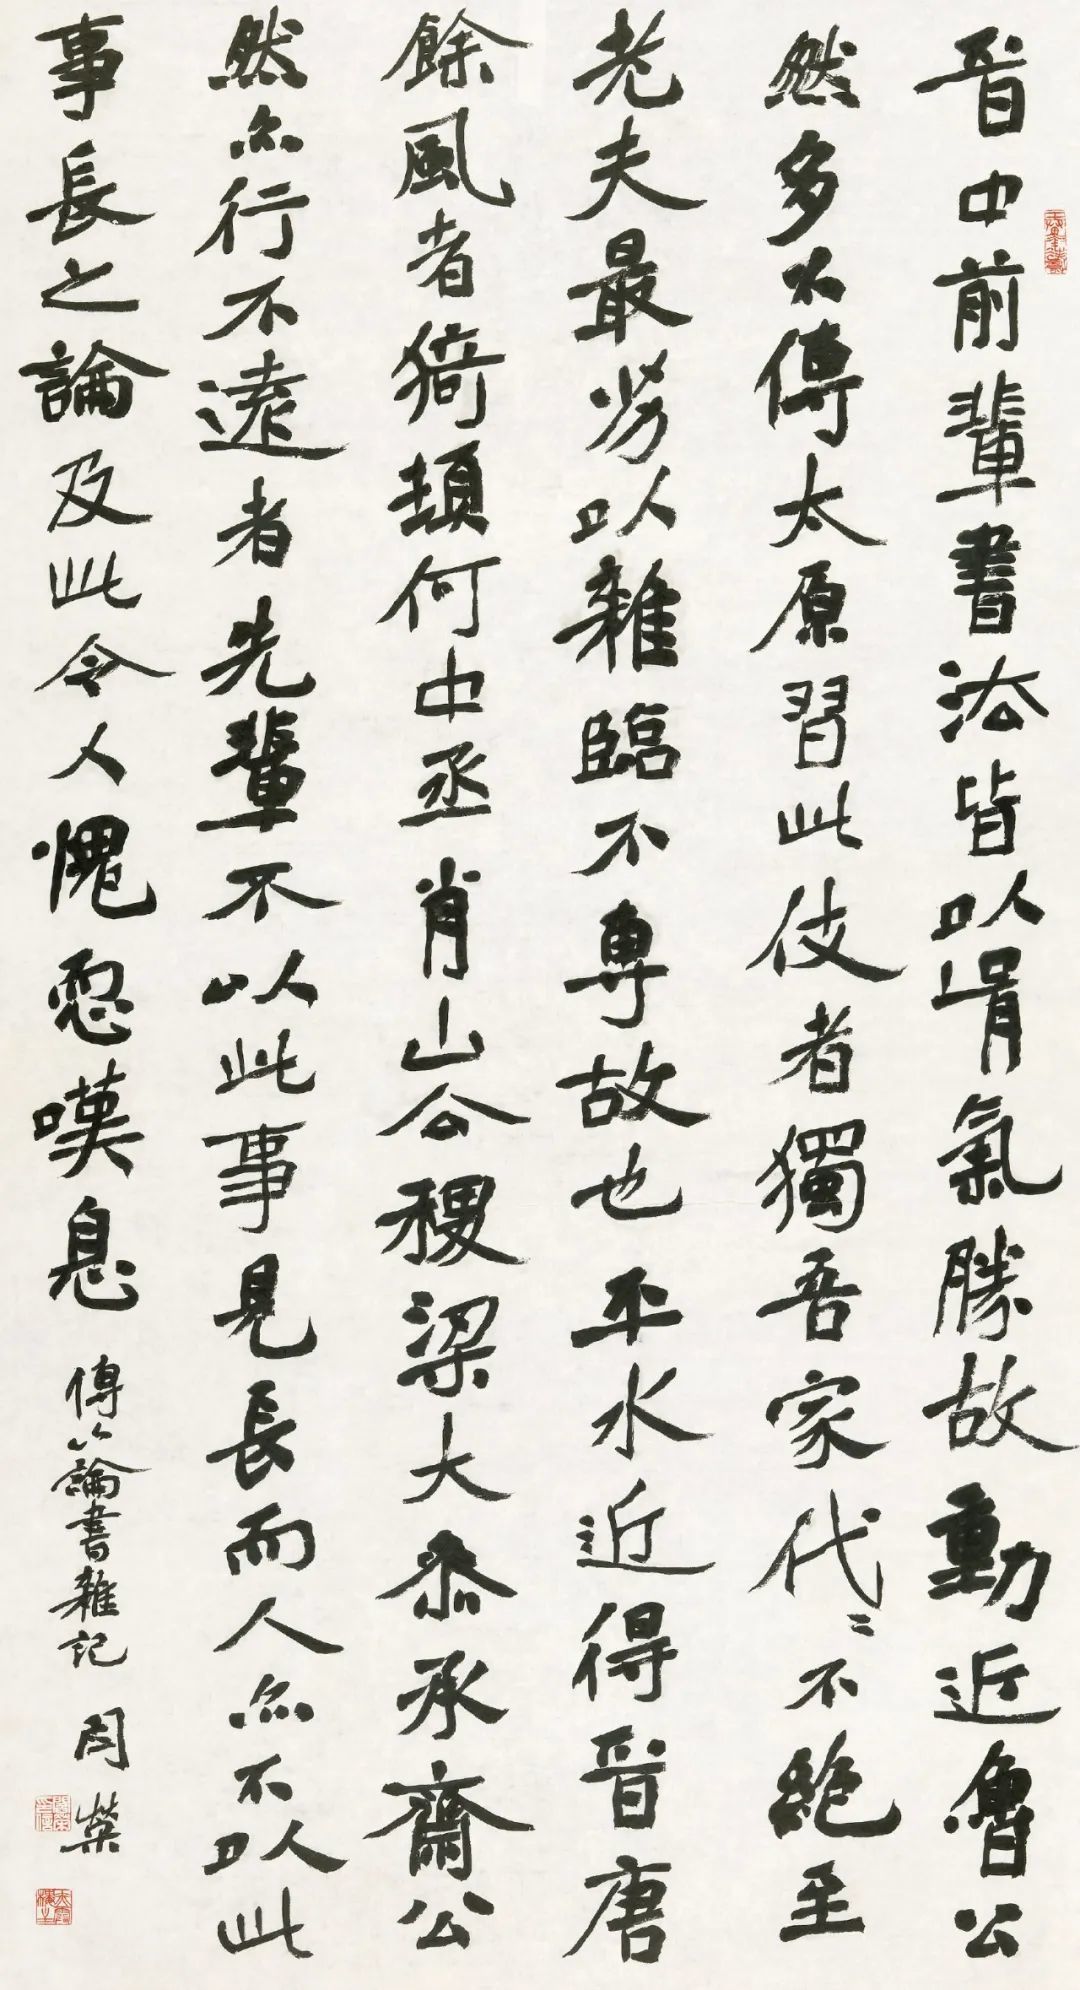 晋中前輩書法皆以骨氣勝故動近魯公
然多不傳太原習此伎者獨吾家代二不絕至
老夫最劣以雜臨不專故也平水近得晋唐
餘風者猗頓何中丞肖山公稷梁大參承齋公
然亦行不遠者先輩不以此事見長而人亦不以此
事長之論及此令人愧恧嘆息
傅山論書雜記 周榮